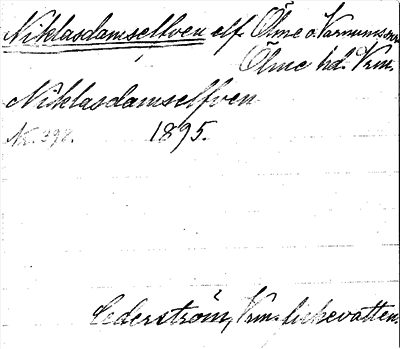 Niklasdamselfven elf. Ölme o. Varnums snr
Ölme hd. Vrm.
Niklasdamselfven
Nr. 398. 1895.
Cederström, Vrms fiskevatten.